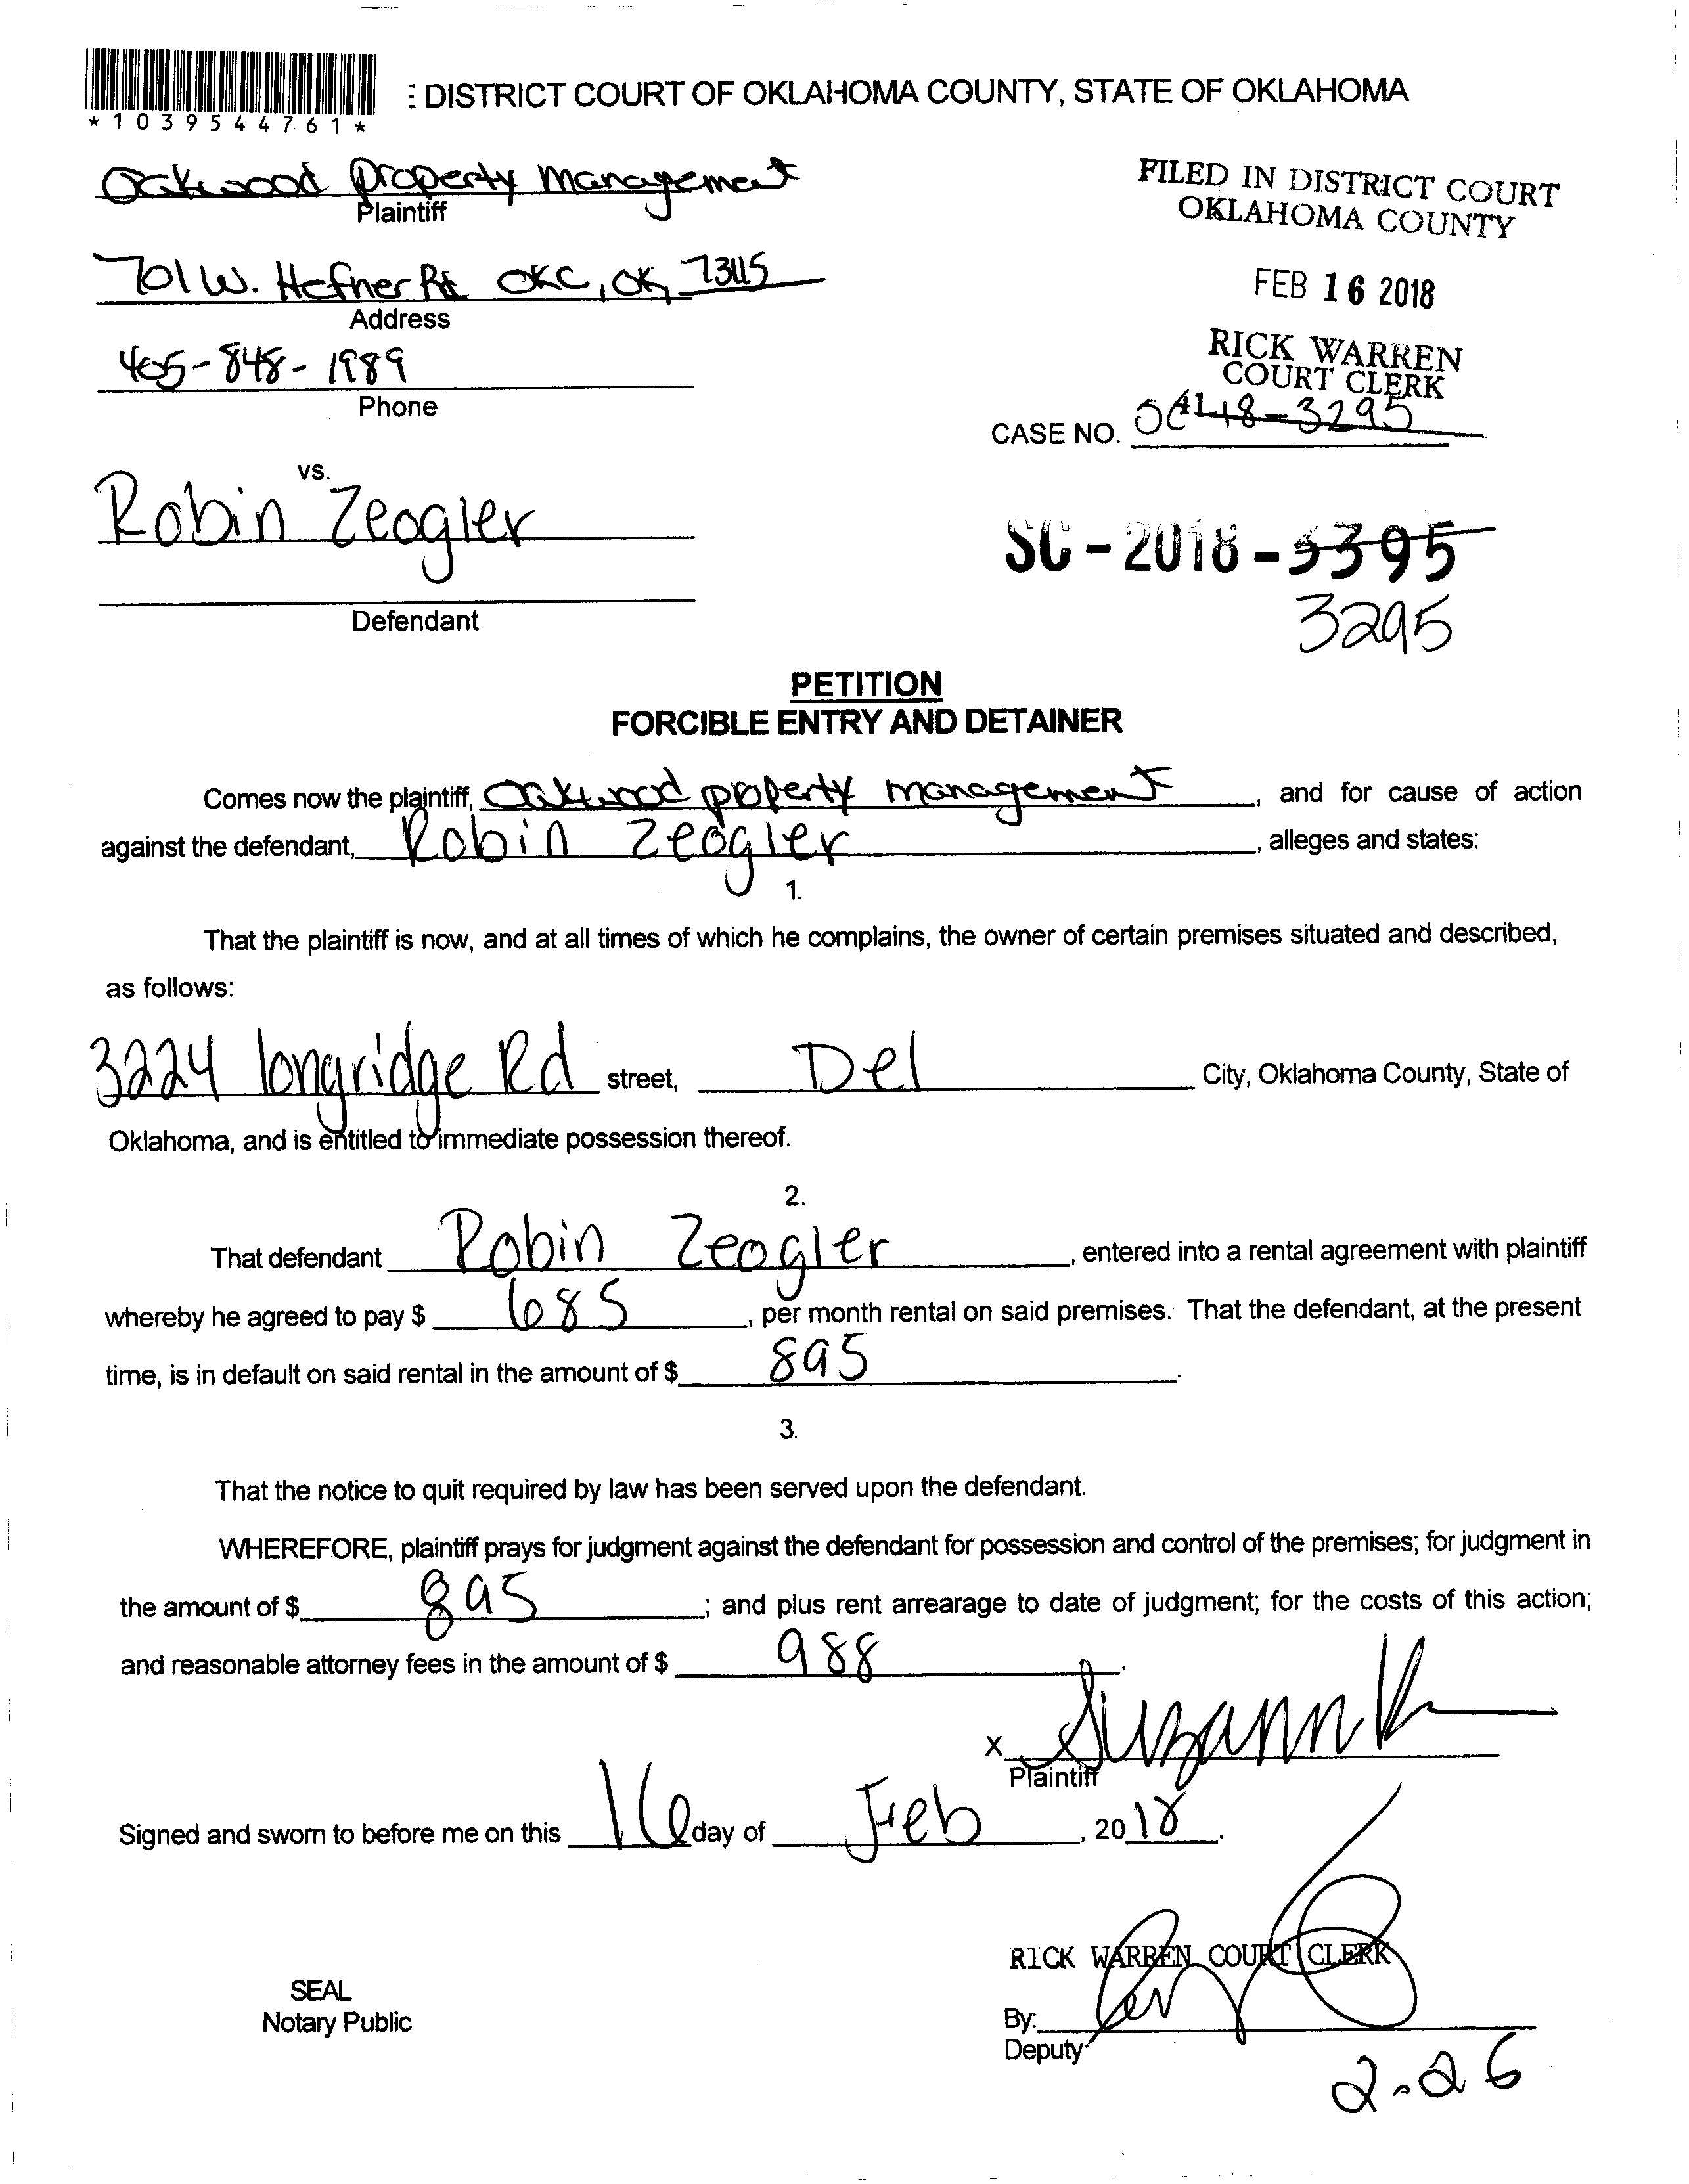 *1039544761*
: DISTRICT COURT OF OKLAHOMA COUNTY, STATE OF OKLAHOMA
Oakwood Property Management
Plaintiff
FILED IN DISTRICT COURT
OKLAHOMA COUNTY
701 W. Hefner Rd OKC, OK,
Address
FEB 16 2018
405-848-1989
Phone
RICK WARREN
COURT CLERK
CASE NO. 18-3295
vs.
Robin Zeogler
SC-2018-3395
3295
Defendant
PETITION
FORCIBLE ENTRY AND DETAINER
Comes now the plaintiff, Oakwood property management, and for cause of action
against the defendant, Robin Zeogler, alleges and states:
1.
That the plaintiff is now, and at all times of which he complains, the owner of certain premises situated and described,
as follows:
3224 longridge Rd street, Del City, Oklahoma County, State of
Oklahoma, and is entitled to immediate possession thereof.
2.
That defendant Robin Zeogler, entered into a rental agreement with plaintiff
whereby he agreed to pay $ 685, per month rental on said premises. That the defendant, at the present
time, is in default on said rental in the amount of $ 895.
3.
That the notice to quit required by law has been served upon the defendant.
WHEREFORE, plaintiff prays for judgment against the defendant for possession and control of the premises; for judgment in
the amount of $ 895; and plus rent arrearage to date of judgment; for the costs of this action;
and reasonable attorney fees in the amount of $ 988.
X Suzann
Plaintiff
Signed and sworn to before me on this 16 day of Feb, 2018.
RICK WARREN COURT CLERK
SEAL
Notary Public
By:
Deputy
2.26